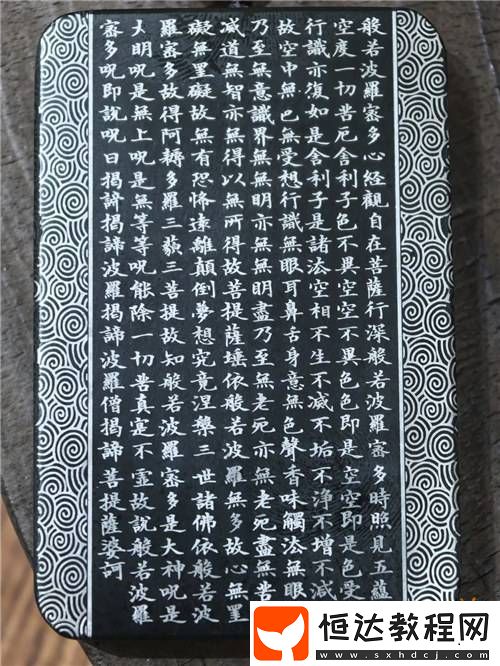 般若波羅蜜多心經觀自在菩薩行深般若波羅蜜多時照見五蘊
空度一切苦厄舍利子色不異空空不異色色即是空空即是色受
行識亦復如是舍利子是諸法空相不生不滅不垢不淨不增不減
故空中無色無受想行識無眼耳鼻舌身意無色聲香味觸法無眼
乃至無意識界無無明亦無無明盡乃至無老死亦無老死盡無苦
滅道無智亦無得以無所得故菩提薩埵依般若波羅無多故心無罣
礙無罣礙故無有恐怖遠離顛倒夢想究竟涅槃三世諸佛依般若波
羅蜜多故得阿耨多羅三藐三菩提故知般若波羅蜜多是大神咒是
大明咒是無上咒是無等等咒能除一切苦真實不虛故說般若波羅
蜜多咒即說咒曰揭諦揭諦波羅揭諦波羅僧揭諦菩提薩婆訶
恒达教程网
www.sxhdcj.com